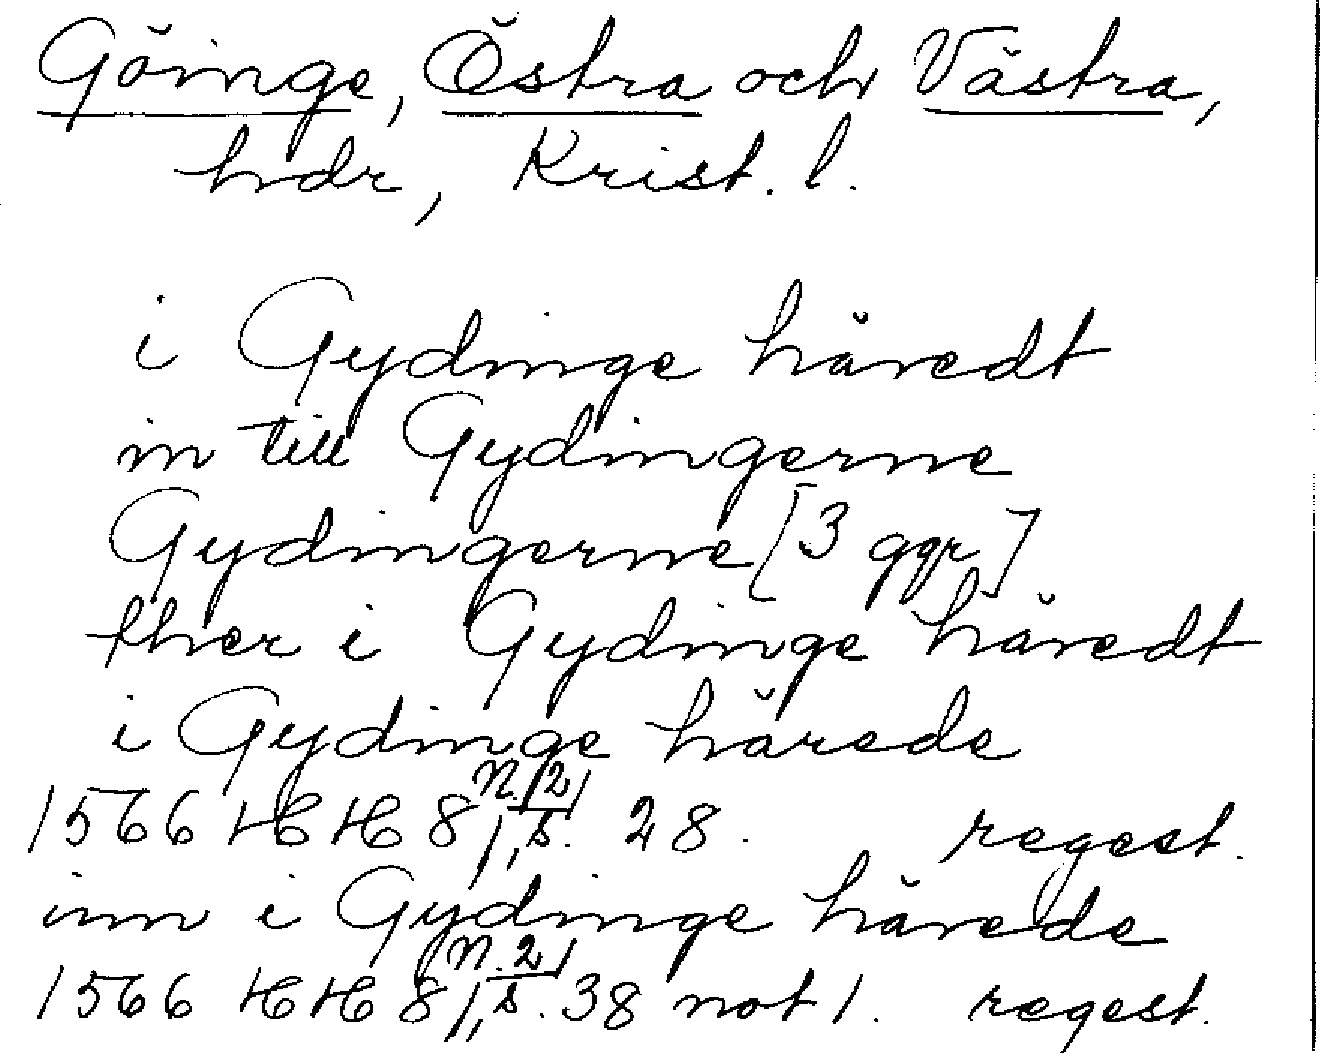 Göinge, Östra och Västra,
hdr, Krist. l.
i Gydinge häredt
in till Gydingerne
Gydingerne [3 ggr]
ther i Gydinge häredt
i Gydinge härede
1566 HH 8, n. 2, s. 28. regest.
inn i Gydinge härede
1566 HH 8, n. 2, s. 38 not 1. regest.